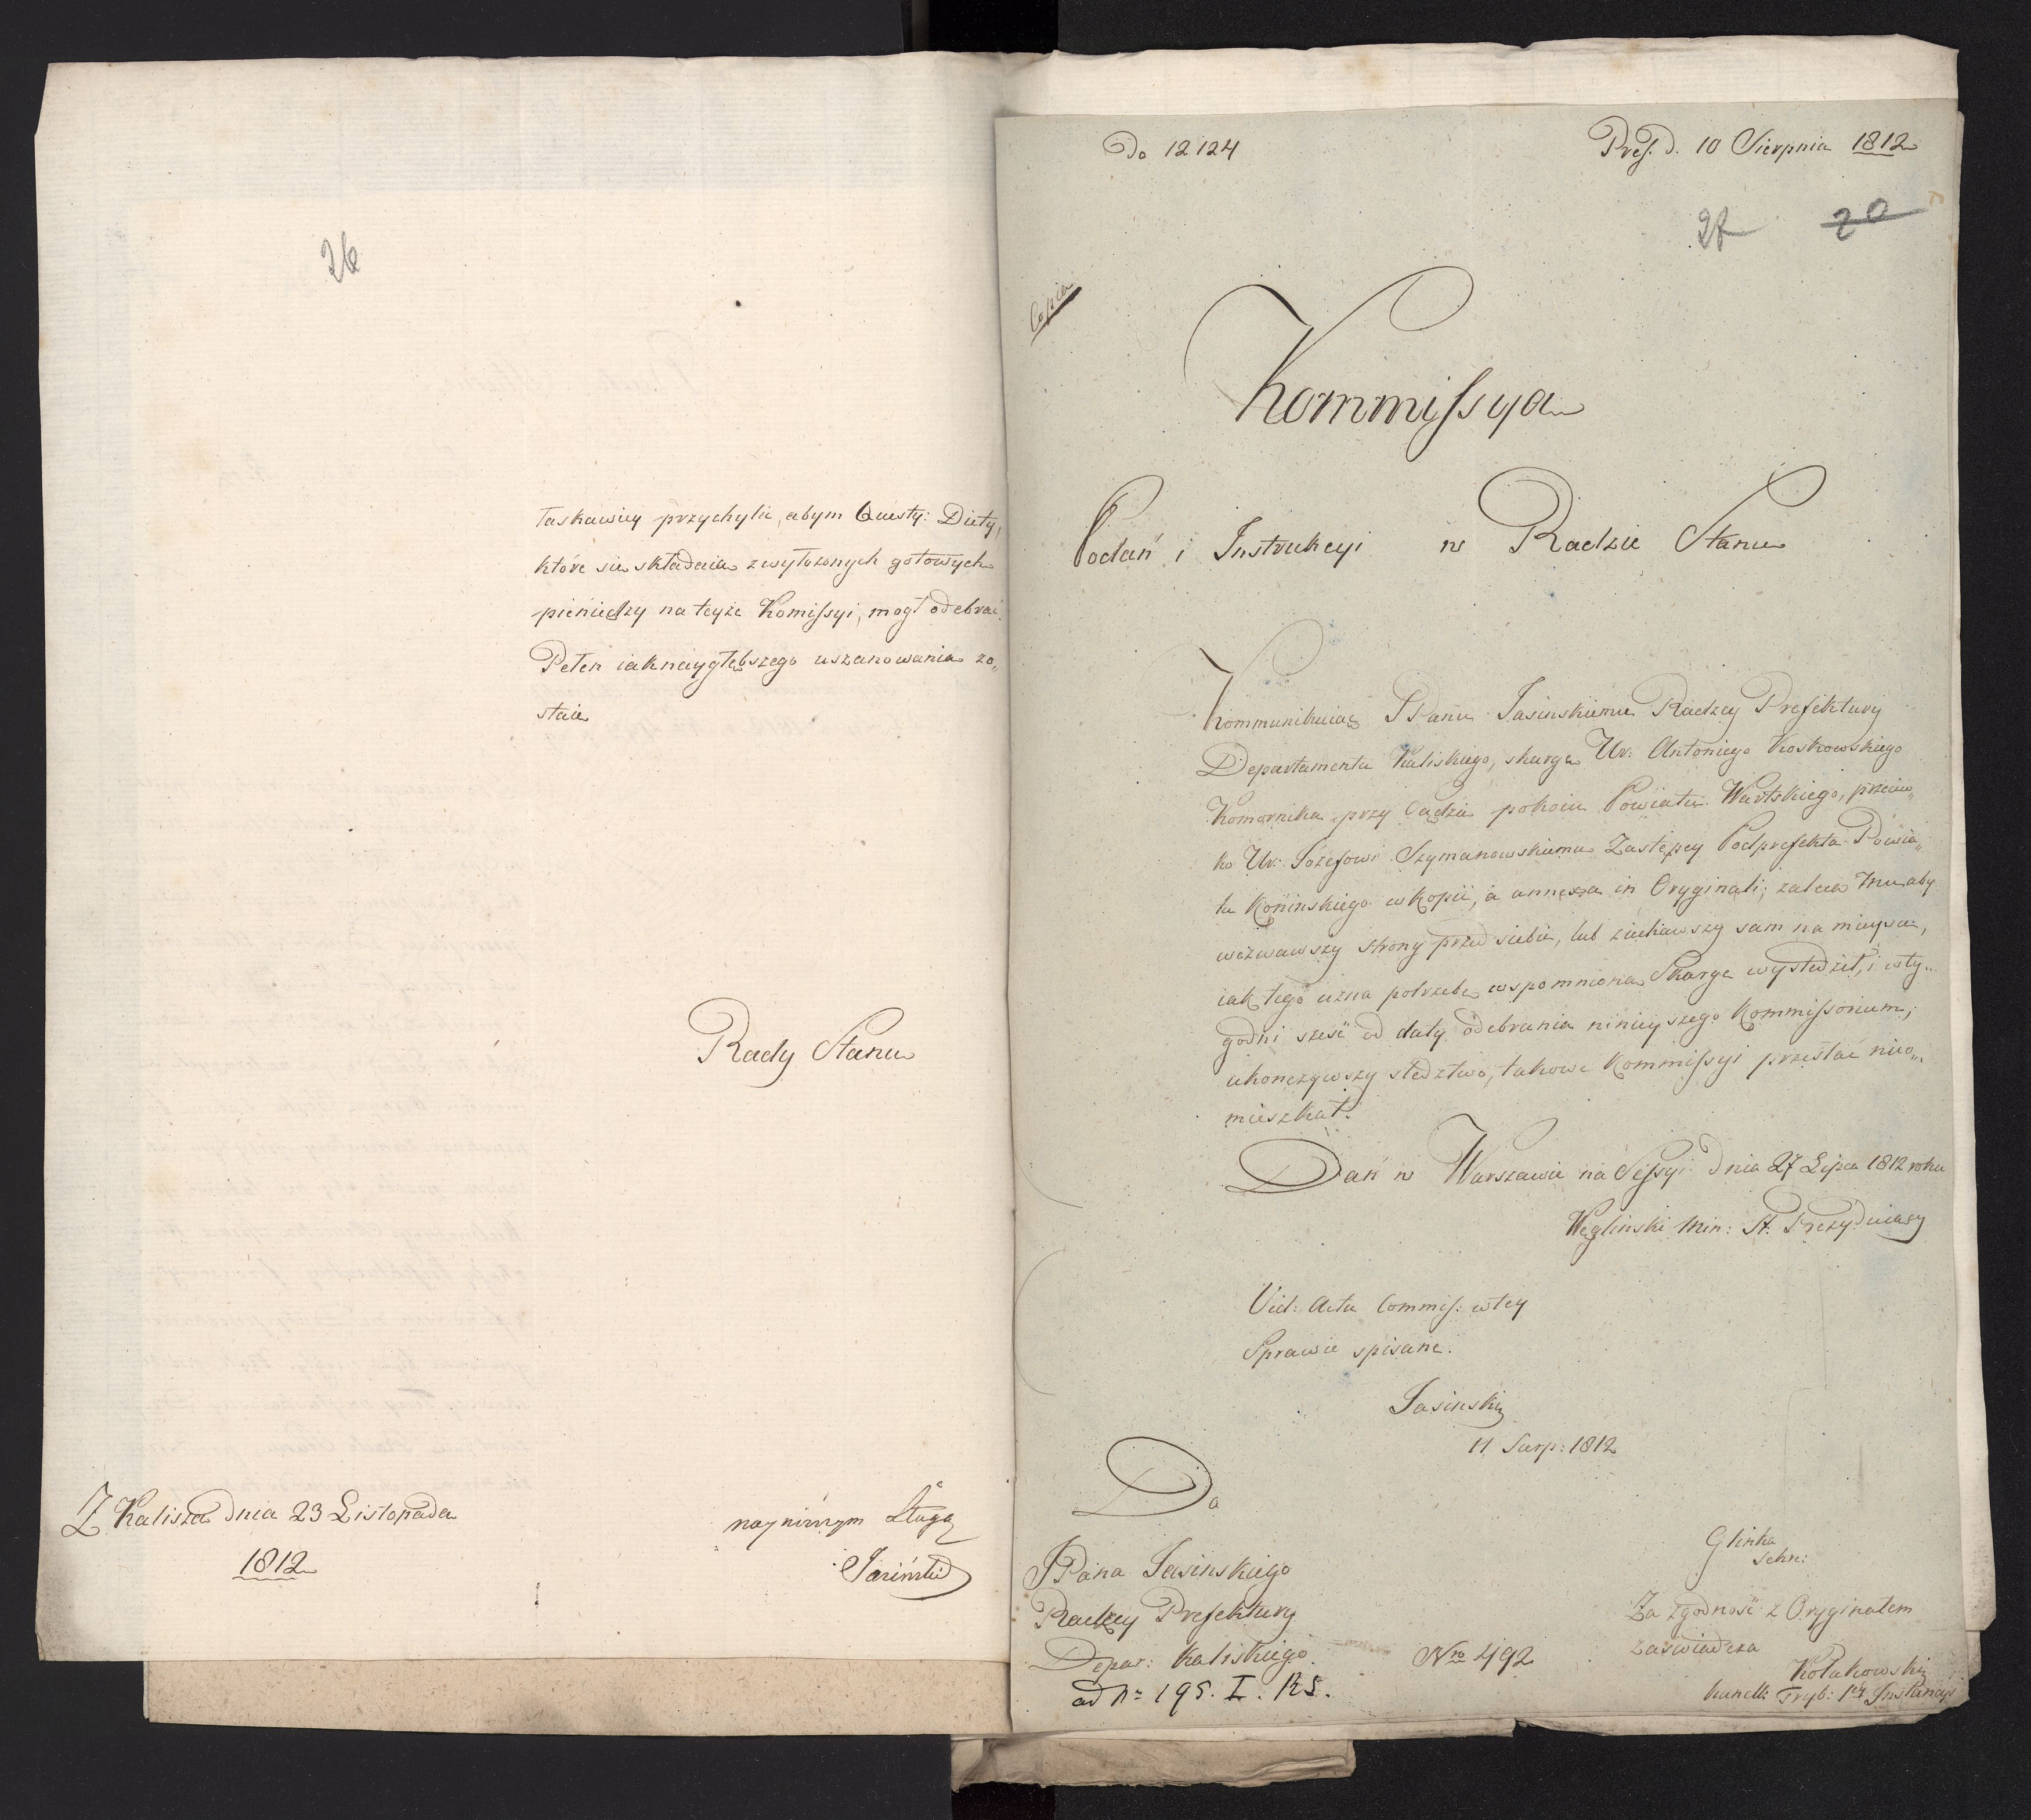 26
łaskawiey przychylić, abym Questy: Diety,
które się składaią z wyłożonych gotowych
pieniędzy na teyże Komissyi, mogł odebrać.
Pełen iaknaygłębszego uszanowania zo„
staię
Rady Stanu
Z Kalisza dnia 23 Listopada
1812
nayniższym Sługą
Jasiński
Do 12124
Pres. d. 10 Sierpnia 1812
27 20
Copia
Kommissya
Podań i Instrukcyi w Radzie Stanu
Kommunikuiąc JPanu Jasinskiemu Radzcy Prefektury
Departamentu Kaliskiego, skargę Ur: Antoniego Koskowskiego
Komornika przy Sądzie pokoiu Powiatu Wartskiego, przeciw„
ko Ur: Jozefowi Szymanowskiemu Zastępcy Podprefekta Powia„
tu Konińskiego w kopii, a annexa in Oryginali; zaleca Mu aby
wezwawszy strony przed siebie, lub ziechawszy sam na mieysce,
iak tego uzna potrzebę wspomnioną Skargę wyśledził, i w ty„
godni sześć od daty odebrania ninieyszego Kommissorium,
ukończywszy sledztwo, takowe Kommissyi przesłać nieo„
mieszkał.
Dan w Warszawie na Sessyi dnia 27 Lipca 1812 roku
Węgliński Min: St: Prezyduiący
Vid: Acta Commiss: w tey
Sprawie spisane.
Jasinski
11 Sierp: 1812
Do
JPana Jasinskiego
Radzcy Prefektury
Depar: Kaliskiego.
ad Nr 195. I. RS.
Nro 492
Glinka
Sekr:
Za zgodność z Oryginałem
zaświadcza
Kołakowski
Kancell: Tryb: 1éy Instancyi